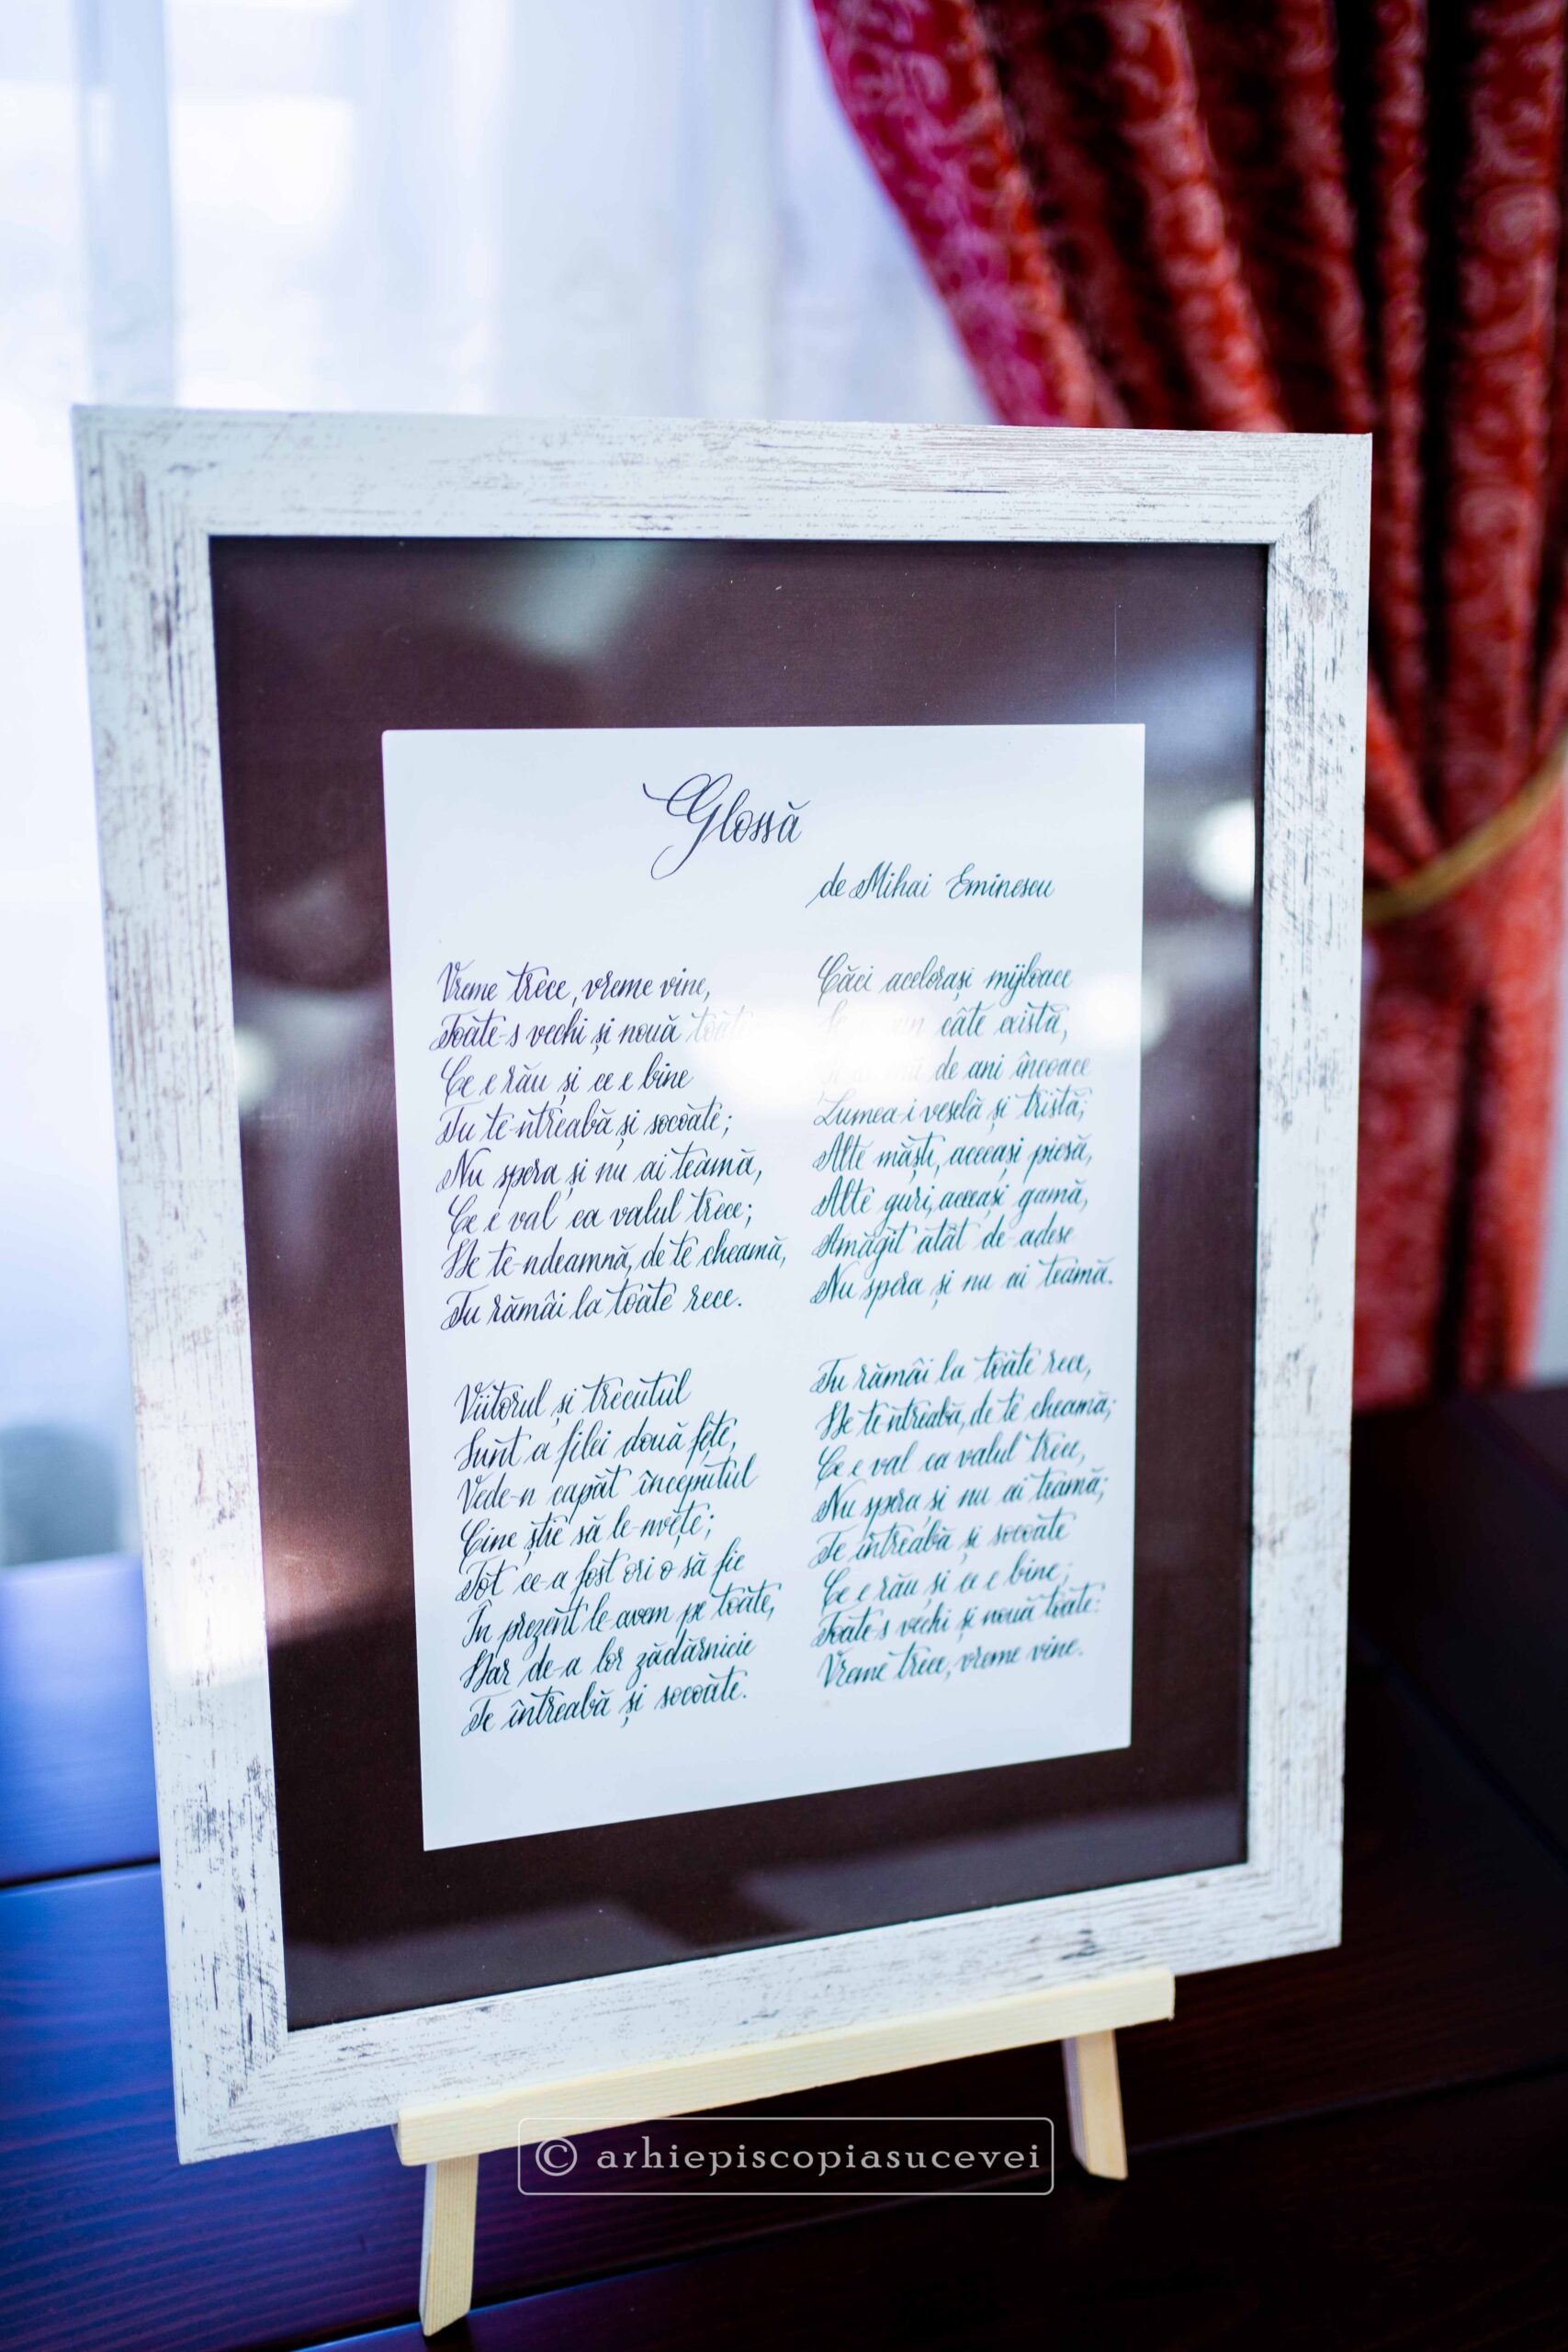 Glossă
de Mihai Eminescu
Vreme trece, vreme vine,
Toate-s vechi și nouă toat
Ce e rău și ce e bine
Tu te-ntreabă și socoate;
Nu spera și nu ai teamă,
Ce e val ca valul trece;
De te-ndeamnă, de te cheamă,
Tu rămâi la toate rece.
Viitorul și trecutul
Sunt a filei două fețe,
Vede-n capăt începutul
Cine știe să le-nvețe;
Tot ce-a fost ori o să fie
În prezent le avem pe toate,
Dar de-a lor zădărnicie
Te întreabă și socoate.
Căci acelorași mijloace
câte există,
de ani încoace
Lumea-i veselă și tristă;
Alte măști, aceeași piesă,
Alte guri, aceeași gamă,
Amăgit atât de-adese
Nu spera și nu ai teamă.
Tu rămâi la toate rece,
De te-ntreabă, de te cheamă;
Ce e val ca valul trece,
Nu spera și nu ai teamă;
Te întreabă și socoate
Ce e rău și ce e bine;
Toate-s vechi și nouă toate:
Vreme trece, vreme vine.
© arhiepiscopiasucevei